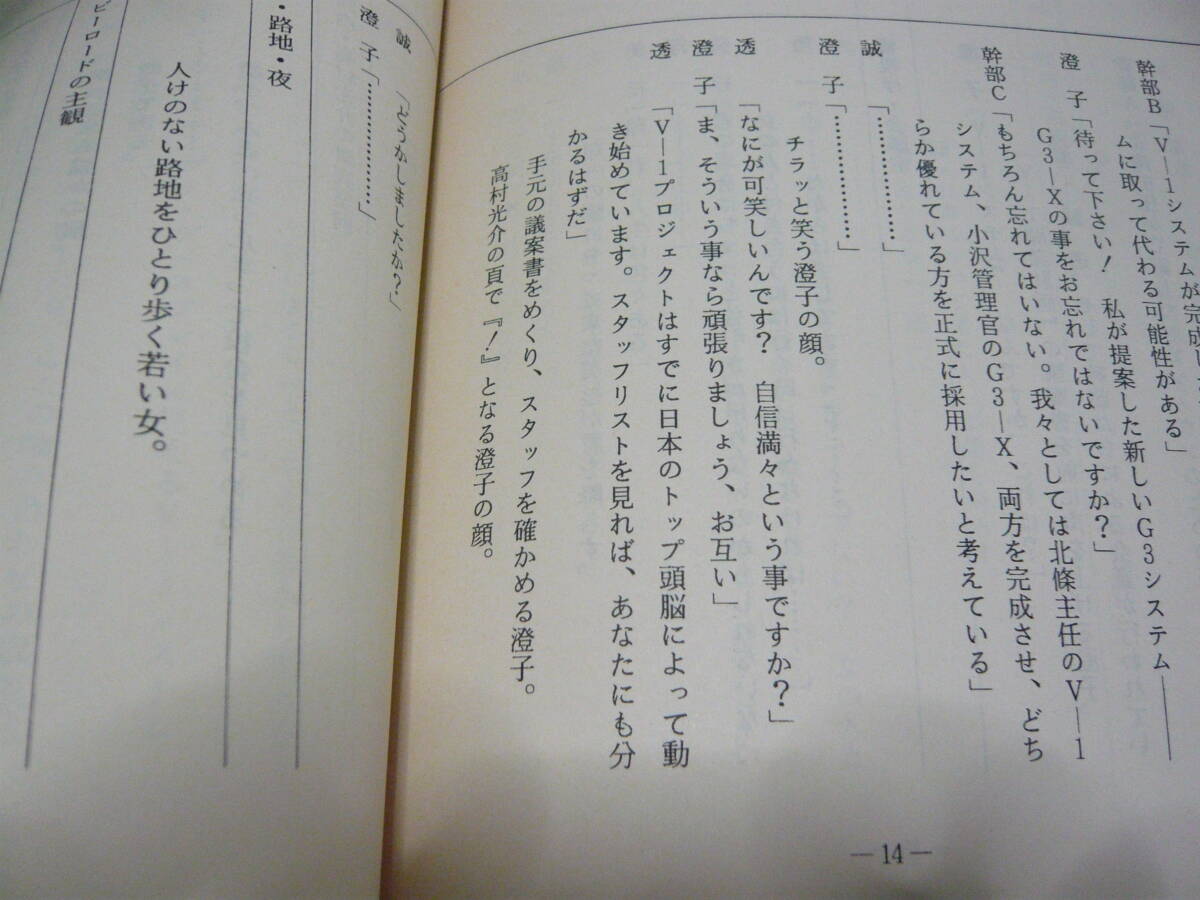 幹部B「V―1システムが完成し
ムに取って代わる可能性がある」
澄子「待って下さい！　私が提案した新しいG3システム――
G3―Xの事をお忘れではないですか？」
幹部C「もちろん忘れてはいない。我々としては北條主任のV―1
システム、小沢管理官のG3―X、両方を完成させ、どち
らか優れている方を正式に採用したいと考えている」
誠「………………」
澄子「………………」
チラッと笑う澄子の顔。
透「なにが可笑しいんです？　自信満々という事ですか？」
澄子「ま、そういう事なら頑張りましょう、お互い」
透「V―1プロジェクトはすでに日本のトップ頭脳によって動
き始めています。スタッフリストを見れば、あなたにも分
かるはずだ」
手元の議案書をめくり、スタッフを確かめる澄子。
高村光介の頁で『！』となる澄子の顔。
―14―
誠「どうかしましたか？」
澄子「………………」
・路地・夜
人けのない路地をひとり歩く若い女。
ビーロードの主観